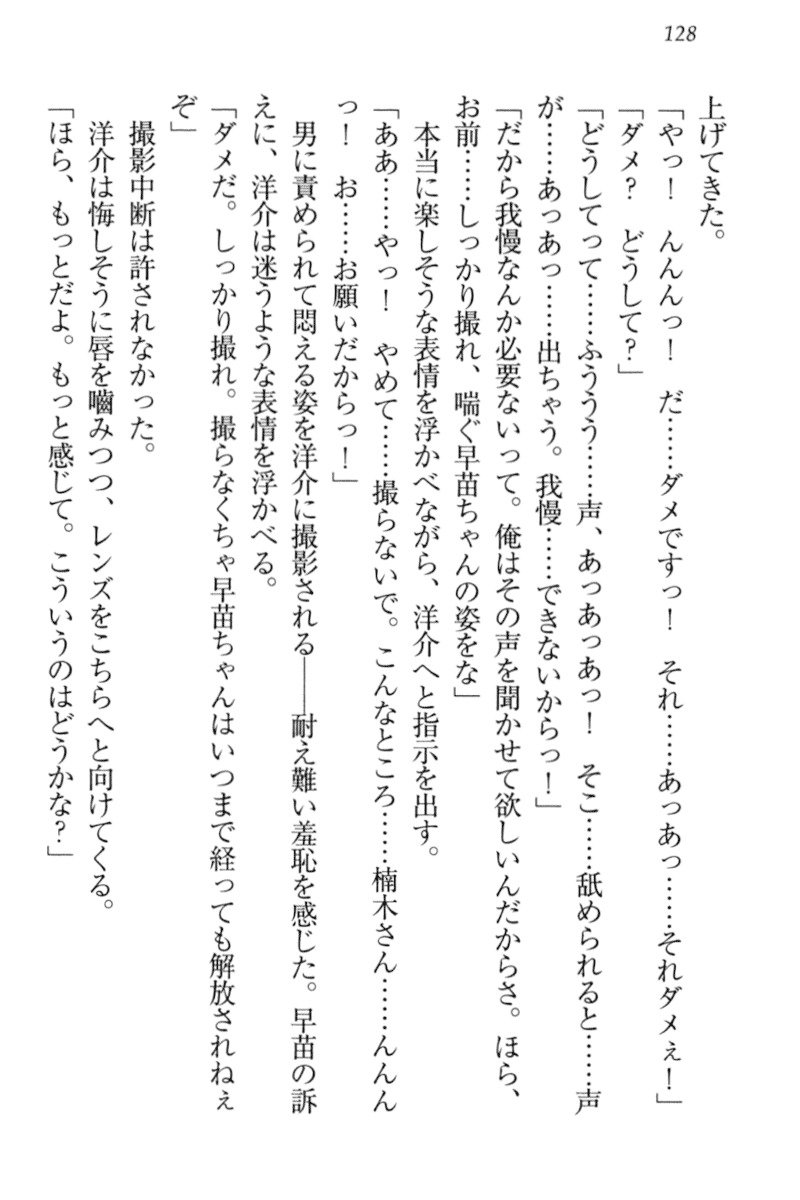 128
上げてきた。
「やっ！　んんんっ！　だ……ダメですっ！　それ……あっあっ……それダメぇ！」
「ダメ？　どうして？」
「どうしてって……ふううう……声、あっあっあっ！　そこ……舐められると……声
が……あっあっ……出ちゃう。我慢……できないからっ！」
「だから我慢なんか必要ないって。俺はその声を聞かせて欲しいんだからさ。ほら、
お前……しっかり撮れ、喘ぐ早苗ちゃんの姿をな」
　本当に楽しそうな表情を浮かべながら、洋介へと指示を出す。
「ああ……やっ！　やめて……撮らないで。こんなところ……楠木さん……んんん
っ！　お……お願いだからっ！」
　男に責められて悶える姿を洋介に撮影される――耐え難い羞恥を感じた。早苗の訴
えに、洋介は迷うような表情を浮かべる。
「ダメだ。しっかり撮れ。撮らなくちゃ早苗ちゃんはいつまで経っても解放されねぇ
ぞ」
　撮影中断は許されなかった。
　洋介は悔しそうに唇を嚙みつつ、レンズをこちらへと向けてくる。
「ほら、もっとだよ。もっと感じて。こういうのはどうかな？」